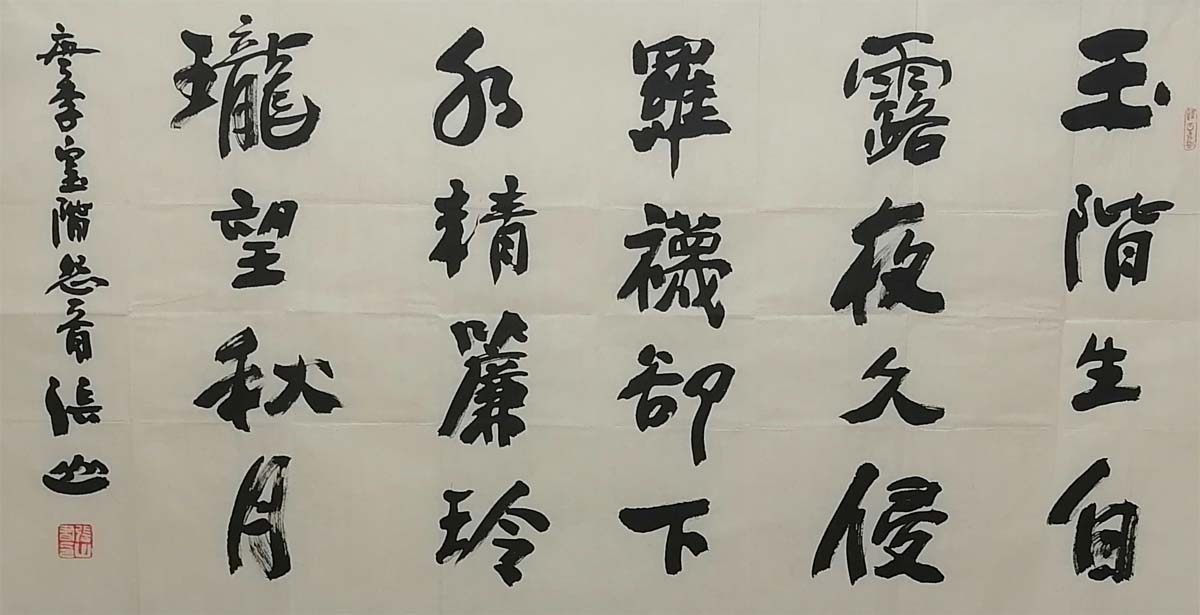 玉階生白
露夜久侵
羅襪卻下
水精簾玲
瓏望秋月
唐李白玉階怨一首張